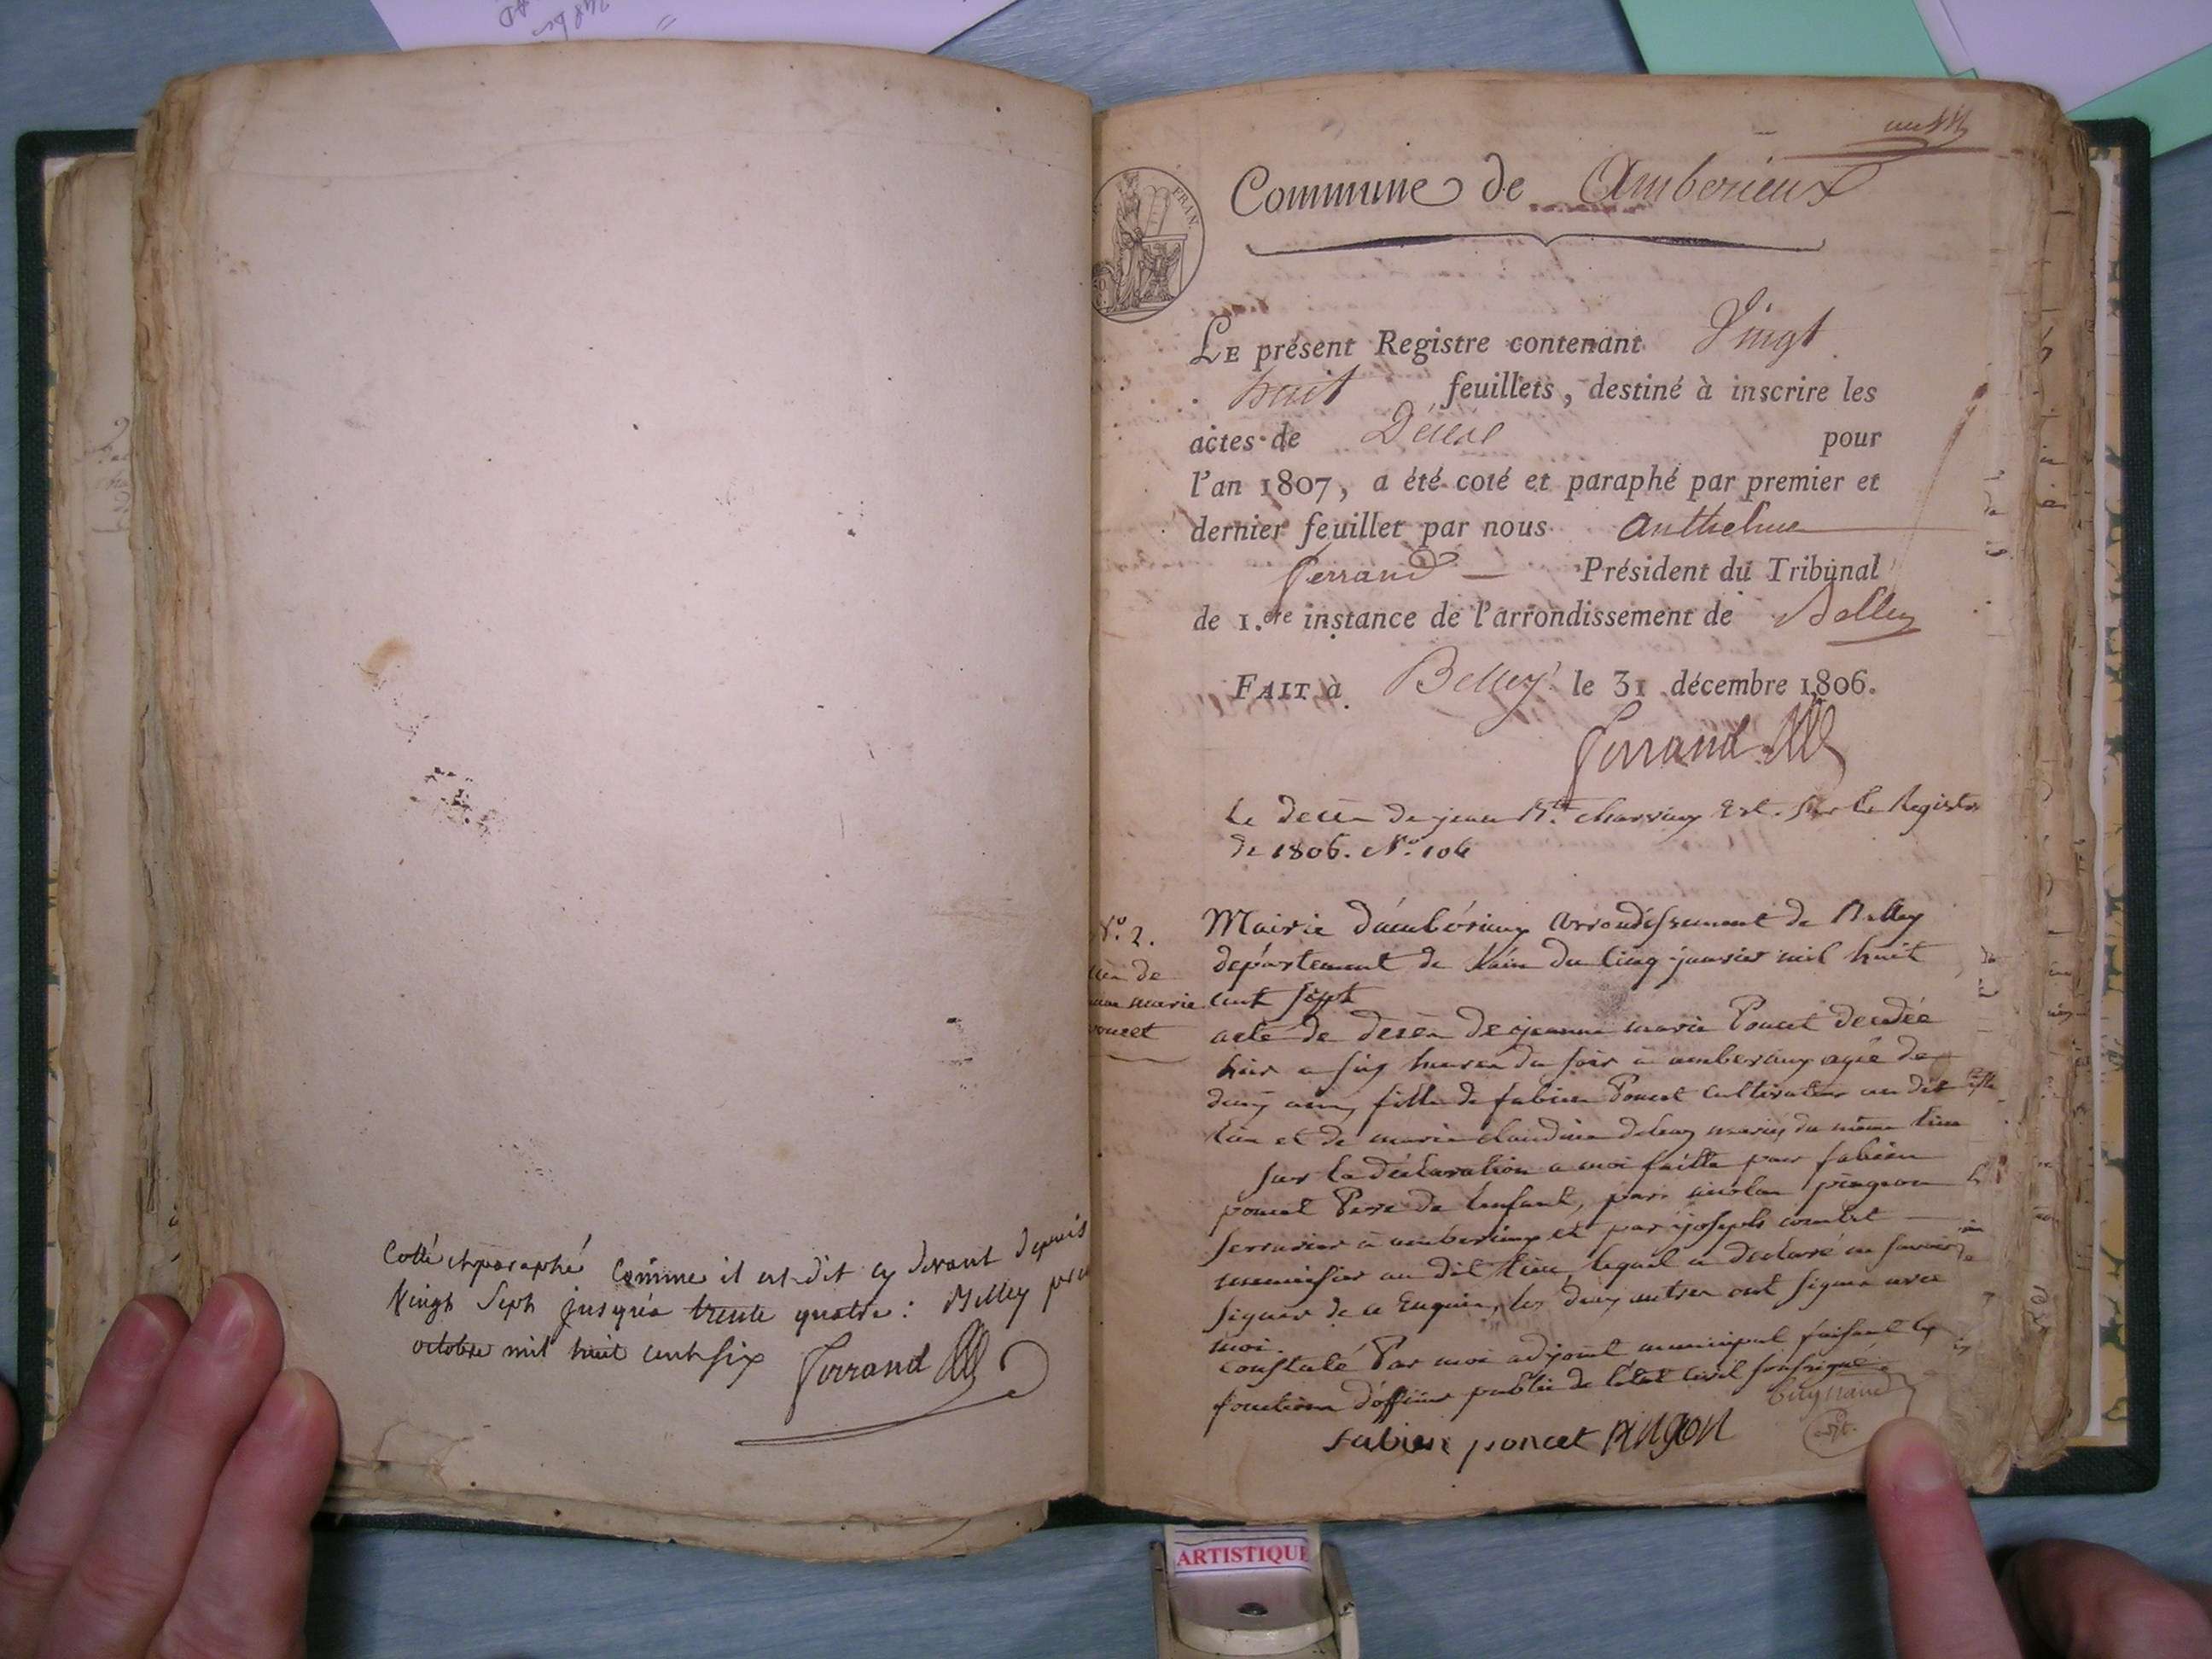 Collé et paraphé comme il est dit cy devant depuis
Vingt Sept jusqu'a trente quatre : Belley
octobre mil huit cent six Ferrand
Commune de Amberieux
FRAN.
LE présent Registre contenant Vingt
huit feuillets, destiné à inscrire les
actes de Décès pour
l'an 1807, a été coté et paraphé par premier et
dernier feuillet par nous Anthelme
Ferrand Président du Tribunal
de 1.ere instance de l'arrondissement de Belley
FAIT à Belley le 31 décembre 1806.
Ferrand
Le décès de jean Bte. charvay Est sur le Registre
de 1806. N.o 106
N.o 2.
de
marie
poncet
Mairie d'ambérieux arrondissement de Belley
département de l'ain du cinq janvier mil huit
cent sept
acte de décès de jeanne marie Poncet décédée
hier a six heures du soir a amberieux agée de
deux ans, fille de fabien Poncet cultivateur au dit
lieu et de marie claudine mariés du même lieu
sur la déclaration a moi faitte par fabien
poncet Pere de l'enfant, par nicolas pingeon
serrurier a amberieux et par joseph combet
menuisier au dit lieu lequel a declaré ne savoir
signer de ce Enquis, les deux autres ont signé avec
moi.
constaté Par moi adjoint municipal faisant les
fonctions d'officier public de l'état civil soussigné.
fabien poncet PINGON
ARTISTIQUE